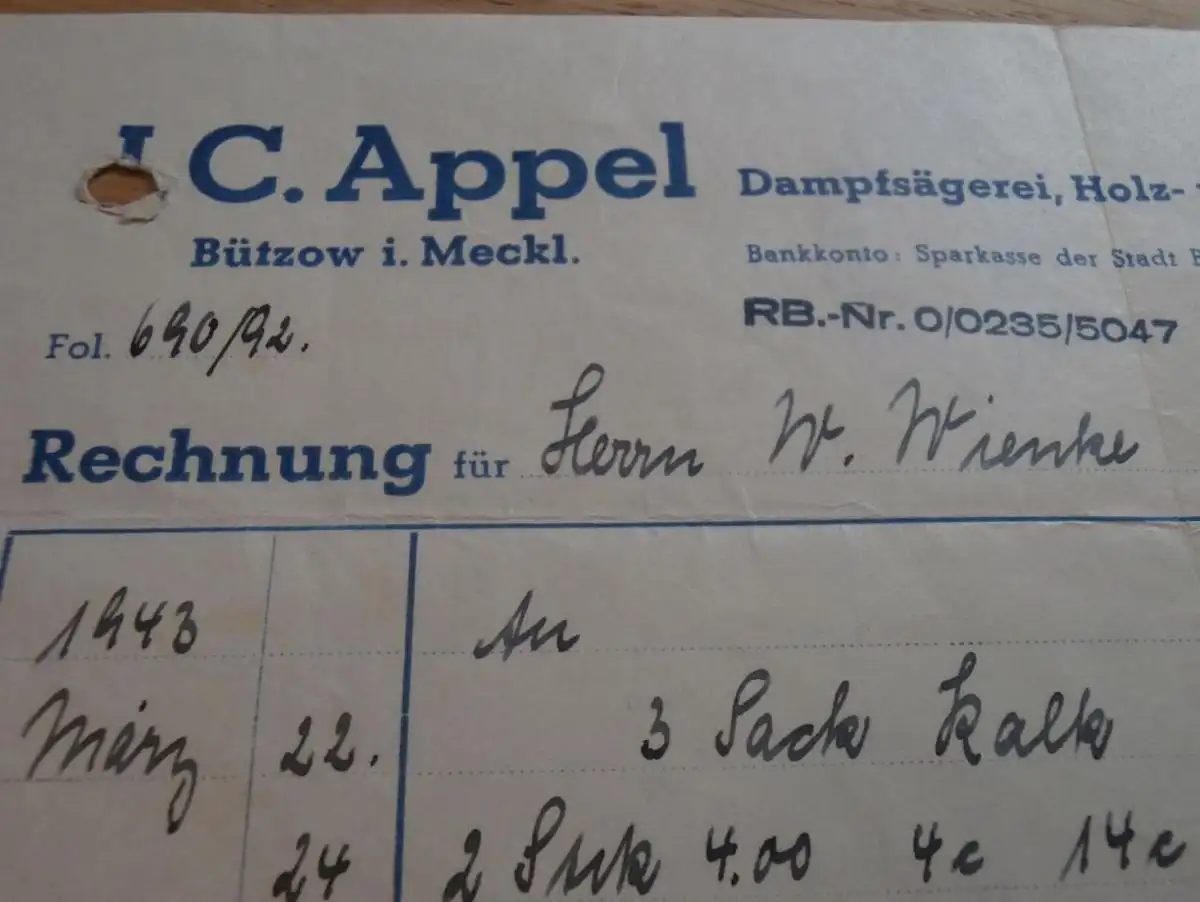 J. C. Appel
Dampfsägerei, Holz-
Bützow i. Meckl.
Bankkonto: Sparkasse der Stadt B
Fol. 690/92.
RB.-Nr. 0/0235/5047
Rechnung für Herrn W. Wienke
1943 An
März 22. 3 Sack Kalk
24 2 Stck 4.00 4c 14c